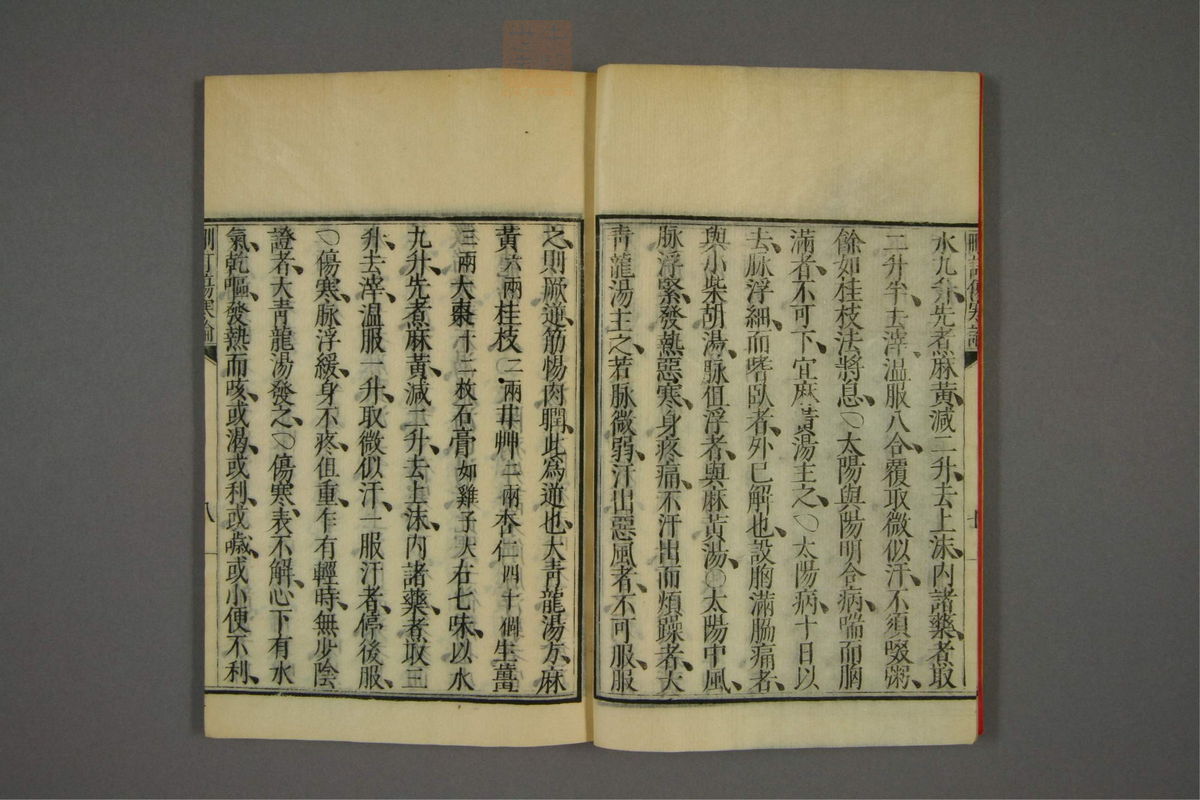 刪訂傷寒論
七
水九升、先煮麻黃、減二升、去上沫、內諸藥、煮取
二升半、去滓、溫服八合、覆取微似汗、不須啜粥、
餘如桂枝法將息、〇太陽與陽明合病、喘而胸
滿者、不可下、宜麻黃湯主之、〇太陽病、十日以
去、脉浮細而嗜臥者、外已解也、設胸滿脇痛者、
與小柴胡湯、脉但浮者、與麻黃湯、〇太陽中風、
脉浮緊、發熱惡寒、身疼痛、不汗出而煩躁者、大
靑龍湯主之、若脉微弱、汗出惡風者、不可服、服
之則厥逆、筋惕肉瞤、此爲逆也、大靑龍湯方、麻
黃六兩桂枝二兩甘艸二兩杏仁四十個生薑
三兩大棗十二枚石膏如雞子大右七味、以水
九升、先煮麻黃、減二升、去上沫、內諸藥、煮取三
升、去滓、溫服一升、取微似汗、一服汗者、停後服、
〇傷寒、脉浮緩、身不疼但重、乍有輕時、無少陰
證者、大靑龍湯發之、〇傷寒、表不解、心下有水
氣、乾嘔、發熱而咳、或渴、或利、或噎、或小便不利、
刪訂傷寒論
八